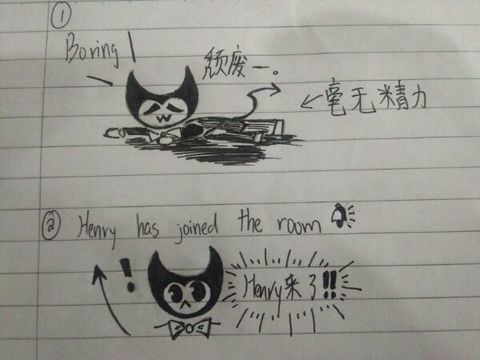 ①
Boring!
颓废一。
←毫无精力
② Henry has joined the room
!
Henry来了!!